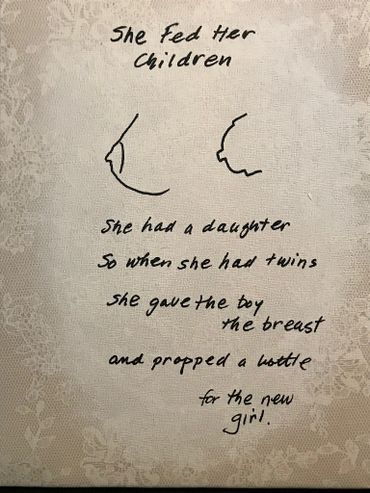 She Fed Her
Children
She had a daughter
So when she had twins
she gave the boy
the breast
and propped a bottle
for the new
girl.